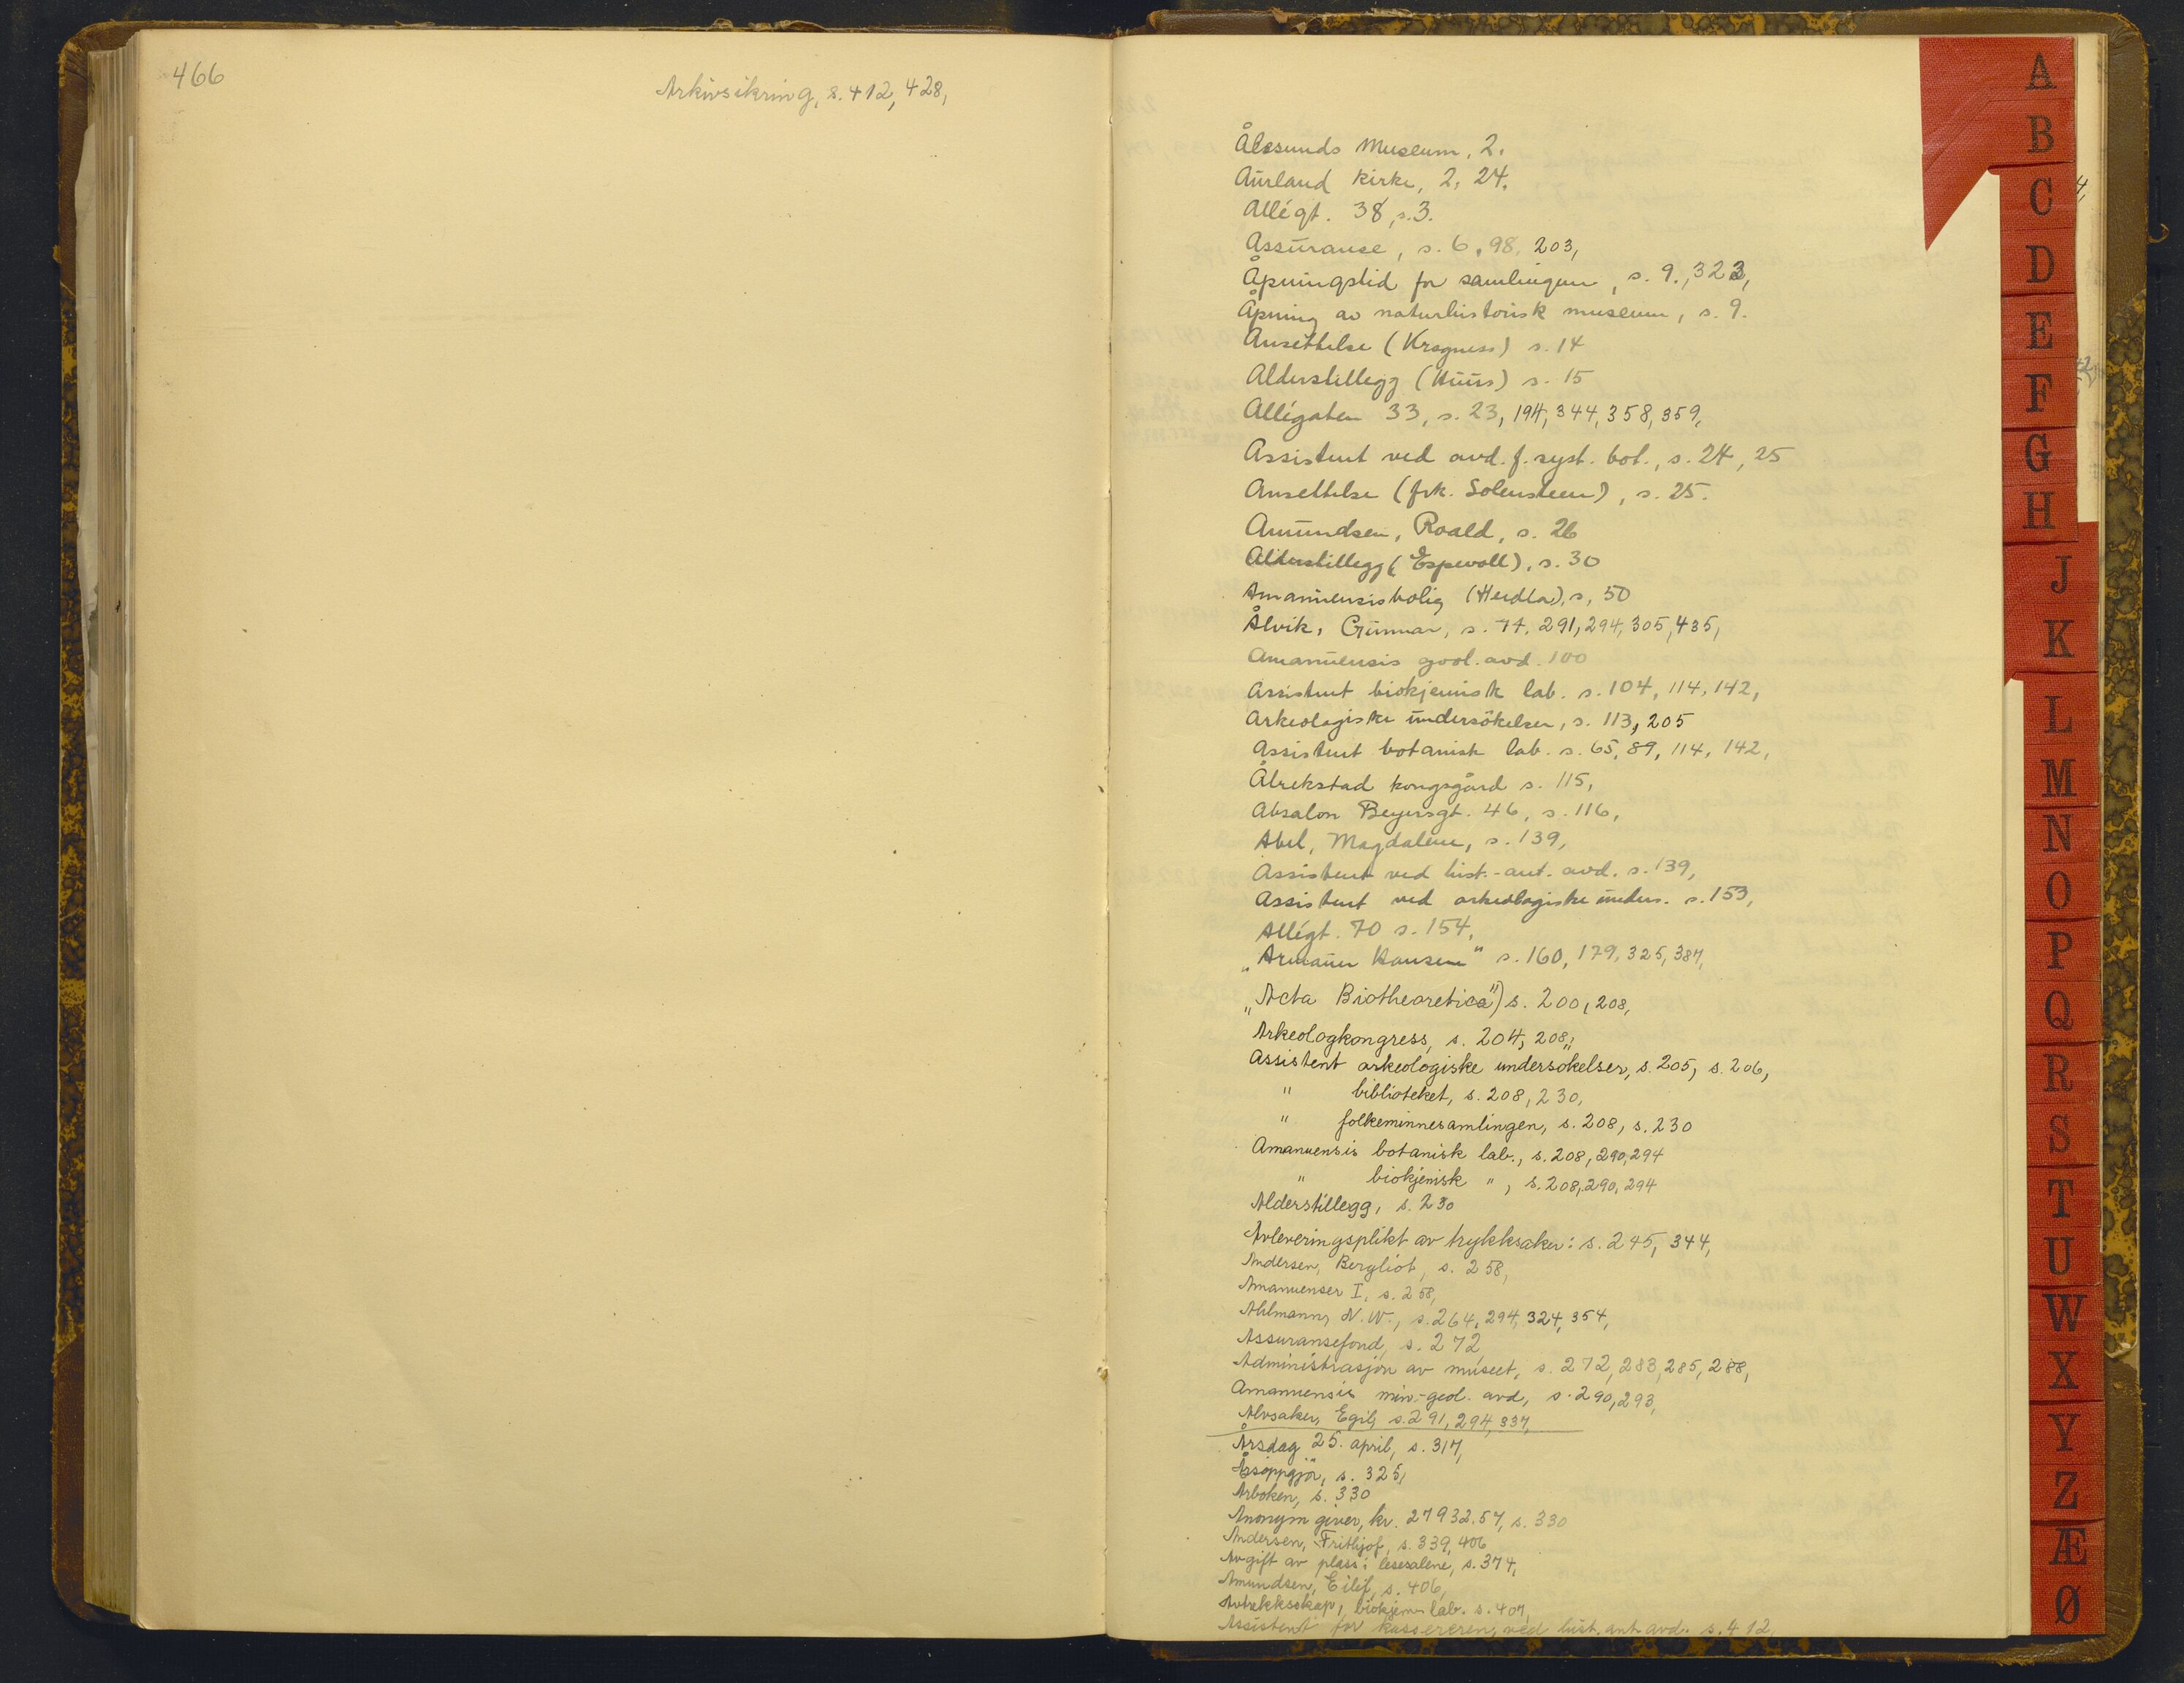 466
Arkivsikring, s. 412, 428,
Ålesunds Museum, 2.
Aurland kirke, 2, 24.
Allégt. 38, s. 3.
Assuranse, s. 6, 98, 203,
Åpningstid for samlingene, s. 9., 323,
Åpning av naturhistorisk museum, s. 9.
Ansettelse (Kragness) s. 14
Alderstillegg (Huus) s. 15
Allégaten 33, s. 23, 194, 344, 358, 359,
Assistent ved avd. f. syst. bot., s. 24, 25
Ansettelse (frk. Solensteen), s. 25.
Amundsen, Roald, s. 26
Alderstillegg (Espevoll), s. 30
Amanuensisbolig (Herdla), s, 50
Ålvik, Gunnar, s. 74, 291, 294, 305, 435,
Amanuensis zool. avd. 100
Assistent biokjemisk lab. s. 104, 114, 142,
Arkeologiske undersökelser, s. 113, 205
Assistent botanisk lab. s. 65, 89, 114, 142,
Ålrekstad kongsgård s. 115,
Absalon Beyersgt. 46, s. 116,
Abel, Magdalene, s. 139,
Assistent ved hist.-ant. avd. s. 139,
Assistent ved arkeologiske unders. s. 153,
Allégt. 70 s. 154,
„Armauer Hansen" s. 160, 179, 325, 387,
„Acta Biotheoretica") s. 200, 208,
Arkeologkongress, s. 204, 208,
Assistent arkeologiske undersøkelser, s. 205, s. 206,
" biblioteket, s. 208, 230,
" folkeminnesamlingen, s. 208, s. 230
Amanuensis botanisk lab., s. 208, 290, 294
" biokjemisk ", s. 208, 290, 294
Alderstillegg, s. 230
Avleveringsplikt av trykksaker: s. 245, 344,
Andersen, Bergliot, s. 258,
Amanuenser I, s. 258,
Ahlmann, H. W., s. 264, 294, 324, 354,
Assuransefond, s. 272
Administrasjon av museet, s. 272, 283, 285, 288,
Amanuensis min.-geol. avd, s. 290, 293,
Alvsaker, Egil, s. 291, 294, 337,
Årsdag 25. april, s. 317,
Årsoppgjör, s. 325,
Årboken, s. 330
Anonym giver, kr. 27932.57, s. 330
Andersen, Frithjof, s. 339, 406
Avgift av plass i lesesalene, s. 374,
Amundsen, Eilif, s. 406,
Avtrekksskap, biokjem. lab. s. 407,
Assistent for kassereren, ved hist. ant. avd. s. 412,
A
B
C
D
E
F
G
H
J
K
L
M
N
O
P
Q
R
S
T
U
W
X
Y
Z
Æ
Ø